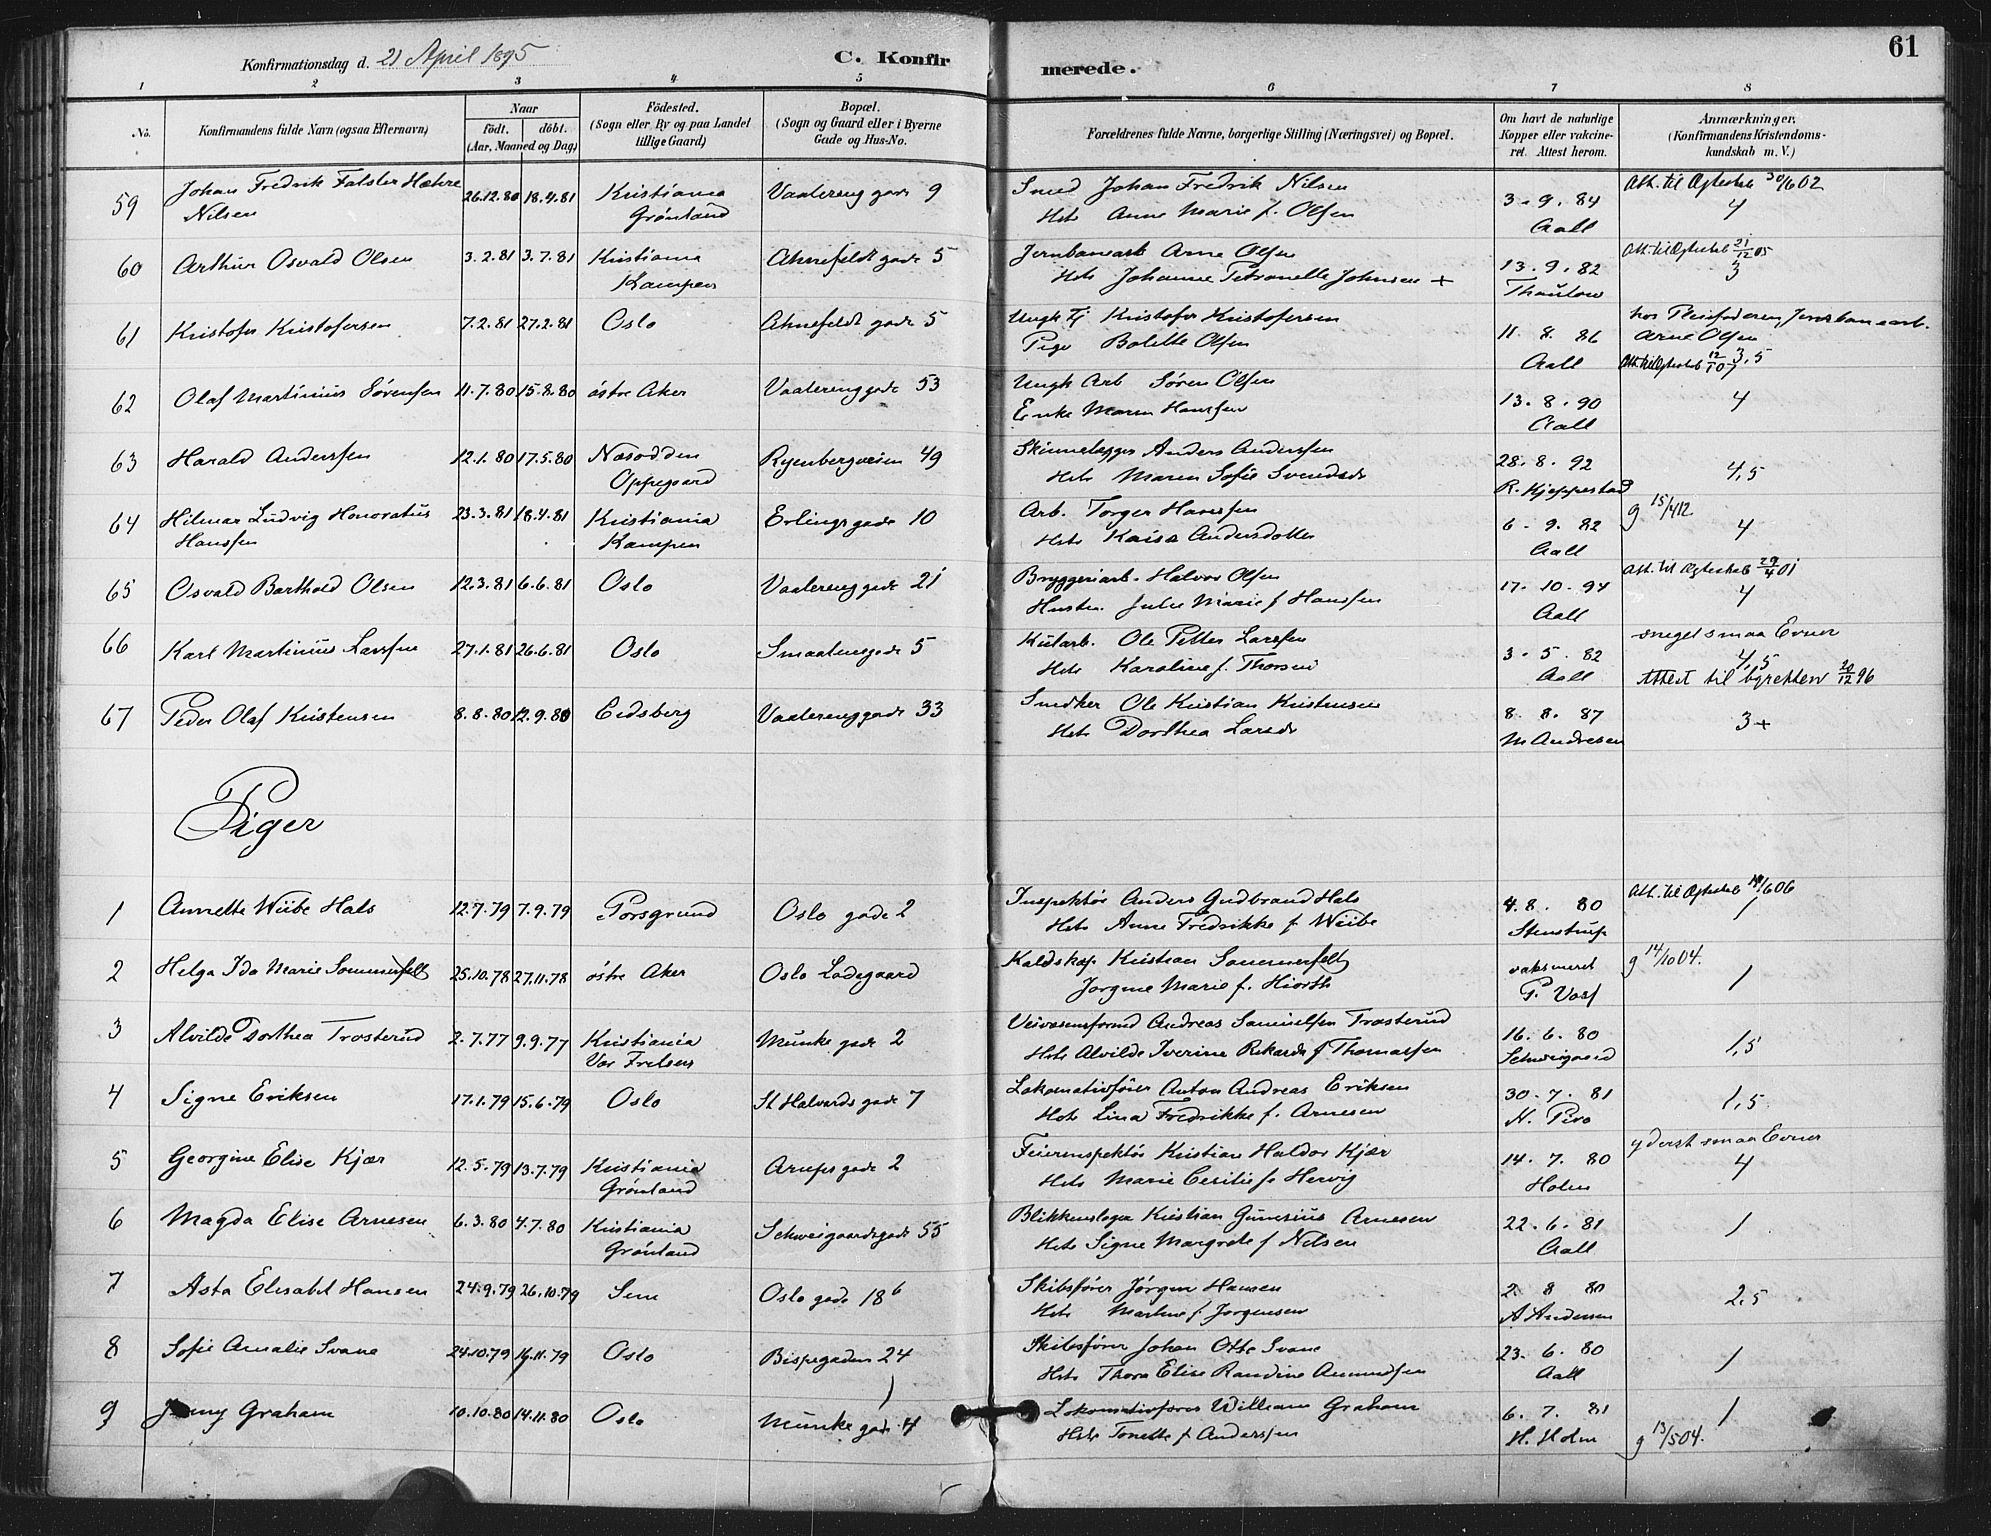 61
Konfirmationsdag d. 21 April 1895
C. Konfirmerede.
1 2 3 4 5 6 7 8
No.
Konfirmandens fulde Navn (ogsaa Efternavn)
Naar
födt. döbt.
(Aar, Maaned og Dag)
Födested.
(Sogn eller By og paa Landet
tillige Gaard)
Bopæl.
(Sogn og Gaard eller i Byerne
Gade og Hus-No.
Forældrenes fulde Navne, borgerlige Stilling (Næringsvei) og Bopæl.
Om havt de naturlige
Kopper eller vakcine-
ret. Attest herom.
Anmærkninger.
(Konfirmandens Kristendoms-
kundskab m. V.)
59 Johan Fredrik Falsler 26.12.80 18.4.81 Kristiania Vaalereng gade 9 Smed Johan Fredrik Nilsen 3. 9. 84 Att. til Ægteskab 30/6 02
Nilsen Grønland Hst Anne Marie f. Olsen Aall 4
60 Arthur Osvald Olsen 3.2.81 3.7.81 Kristiania Ahnefeldt gade 5 Jernbanearb Arne Olsen 13. 9. 82 Att. til Ægteskab 21/12 05
Kampen Hst Johanne Petronelle Johnsen + Thaulow 3
61 Kristofer Kristofersen 7.2.81 27.2.81 Oslo Ahnefeldt gade 5 Ungk Tj Kristofer Kristofersen 11. 8. 86 hos Pleiefaderen Jernbanearb.
Pige Bolette Olsen Aall Arne Olsen
Att. til Ægteskab 12/10 7 3,5
62 Olaf Martinius Sørensen 11.7.80 15.8.80 østre Aker Vaalereng gade 53 Ungk Arb Søren Olsen 13. 8. 90
Enke Maren Hansen Aall 4
63 Harald Anderssen 12.1.80 17.5.80 Næsodden Ryenbergveien 49 Skinnelægger Anders Anderssen 28. 8. 92
Oppegaard Hst Maren Sofie Svendsdr R. Kjeppestad 4,5
64 Hilmar Ludvig Honoratus 23.3.81 18.4.81 Kristiania Erlings gade 10 Arb. Torger Hanssen 6. 9. 82 g 15/4 12
Hanssen Kampen Hst Kaisa Andersdotter Aall 4
65 Osvald Barthold Olsen 12.3.81 6.6.81 Oslo Vaalereng gade 21 Bryggeriarb. Halvor Olsen 17. 10. 94 Att. til Ægteskab 29/4 01
Hustru Julie Marie f Hanssen Aall 4
66 Karl Martinius Larssen 27.1.81 26.6.81 Oslo Smaalensgade 5 Kularb. Ole Petter Larssen 3. 5. 82 meget smaa Evner
Hst Karoline f. Thorsen Aall 4,5
Attest til byretten 20/12 96
67 Peder Olaf Kristensen 8.8.80 12.9.80 Eidsberg Vaalereng gade 33 Snedker Ole Kristian Kristensen 8. 8. 87
Hst Dorthea Larsdr M Andresen 3+
Piger
1 Annette Wiibe Hals 12.7.79 7.9.79 Porsgrund Oslo gade 2 Inspektør Anders Gudbrand Hals 4. 8. 80 Att. til Ægteskab 14/6 06
Hst Anne Fredrikke f Wiibe Stenstrup 1
2 Helga Ida Marie Sommerfelt 25.10.78 27.11.78 østre Aker Oslo Ladegaard Kaldskap. Kristian Sommerfelt vaksineret g 14/10 04.
Jørgine Marie f. Hiorth P. Voss 1
3 Alvilde Dorthea Trosterud 2.7.77 9.9.77 Kristiania Munke gade 2 Veivæsensformd Andreas Samuelsen Trosterud 16. 6. 80
Vor Frelsers Hst Alvilde Iverine Rikarda f Thomassen Schweigaard 1,5
4 Signe Eriksen 17.1.79 15.6.79 Oslo St Halvards gade 7 Lokomotivfører Anton Andreas Eriksen 30. 7. 81
Hst Lina Fredrikke f. Arnesen N. Pevo 1,5
5 Georgine Elise Kjær 12.5.79 13.7.79 Kristiania Arups gade 2 Feierinspektør Kristian Haldor Kjær 14. 7. 80 yderst smaa Evner
Grønland Hst Marie Cecilie f. Hervig Holm 4
6 Magda Elise Arnesen 6.3.80 4.7.80 Kristiania Schweigaardsgade 55 Blikkenslager Kristian Gunerius Arnesen 22. 6. 81
Grønland Hst Signe Margrete f Nilsen Aall 1
7 Asta Elisabet Hansen 24.9.79 26.10.79 Sem Oslo gade 18 b Skibsfører Jørgen Hansen 2. 8 80
Hst Martine f. Jørgensen A Andersen 2,5
8 Sofie Amalie Svane 24.10.79 16.11.79 Oslo Bispegaden 24 Skibsfører Johan Otto Svane 23. 6. 80
Hst Thora Elise Randine Amundsen Aall 1
9 Jenny Graham 10.10.80 14.11.80 Oslo Munke gade 4 Lokomotivfører William Graham 6. 7. 81 1
Hst Tonette f Anderssen H. Holm g 13/5 04.